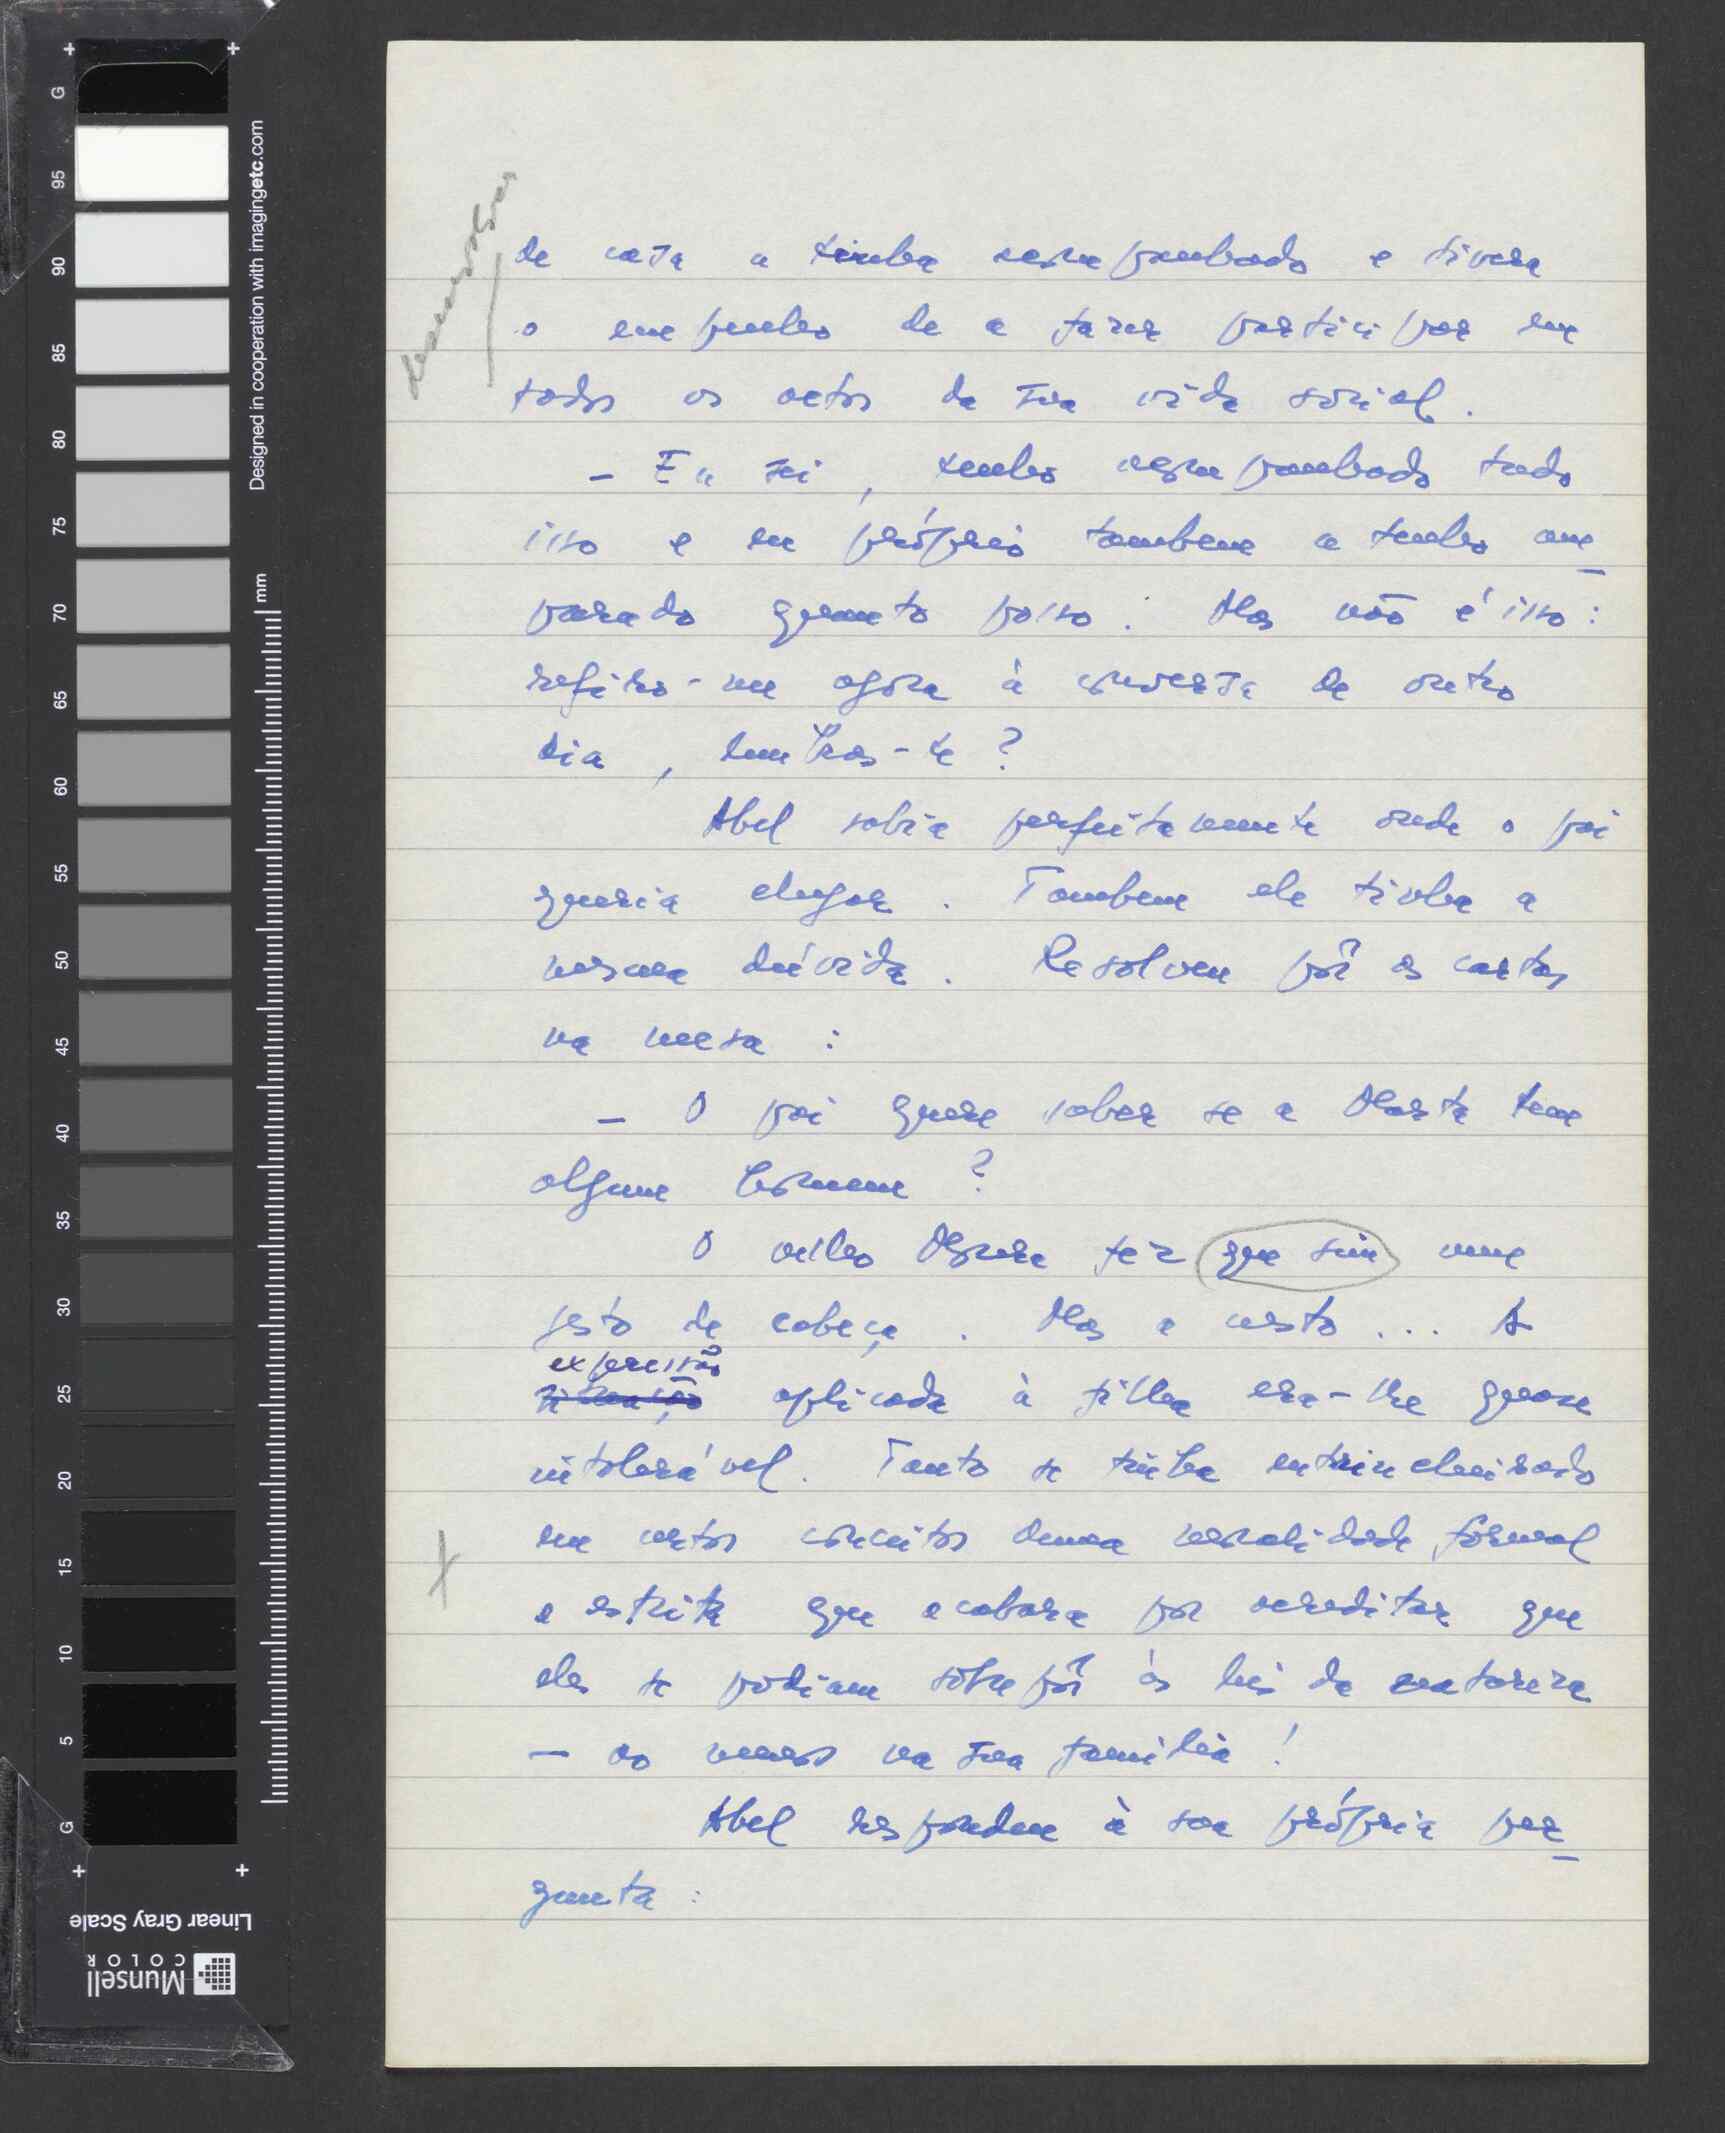 de casa a tinha acompanhado e tivera
o empenho de a fazer participar em
todos os actos da sua vida social.
– Eu sei, tenho acompanhado tudo
isso e eu próprio tambem a tenho am-
parado quanto posso. Mas não é isso:
refiro-me agora à conversa de outro
dia, lembras-te?
Abel sabia perfeitamente onde o pai
queria chegar. Tambem ele tinha a
mesma dúvida. Resolveu pôr as cartas
na mesa:
– O pai quere saber se a Marta tem
algum homem?
O velho Moura fez que sim num
gesto de cabeça. Mas a custo... A
expressão
aplicada à filha era-lhe quase
intolerável. Tanto se tinha entrincheirado
em certos conceitos duma moralidade formal
e estrita que acabara por acreditar que
eles se podiam sobrepôr às leis da natureza
– ao menos na sua familia!
Abel respondeu à sua própria per-
gunta:
G
95
90
85
80
75
70
65
60
55
50
45
40
35
30
25
20
15
10
5
G
mm
Designed in cooperation with imagingetc.com
Linear Gray Scale
Munsell
COLOR